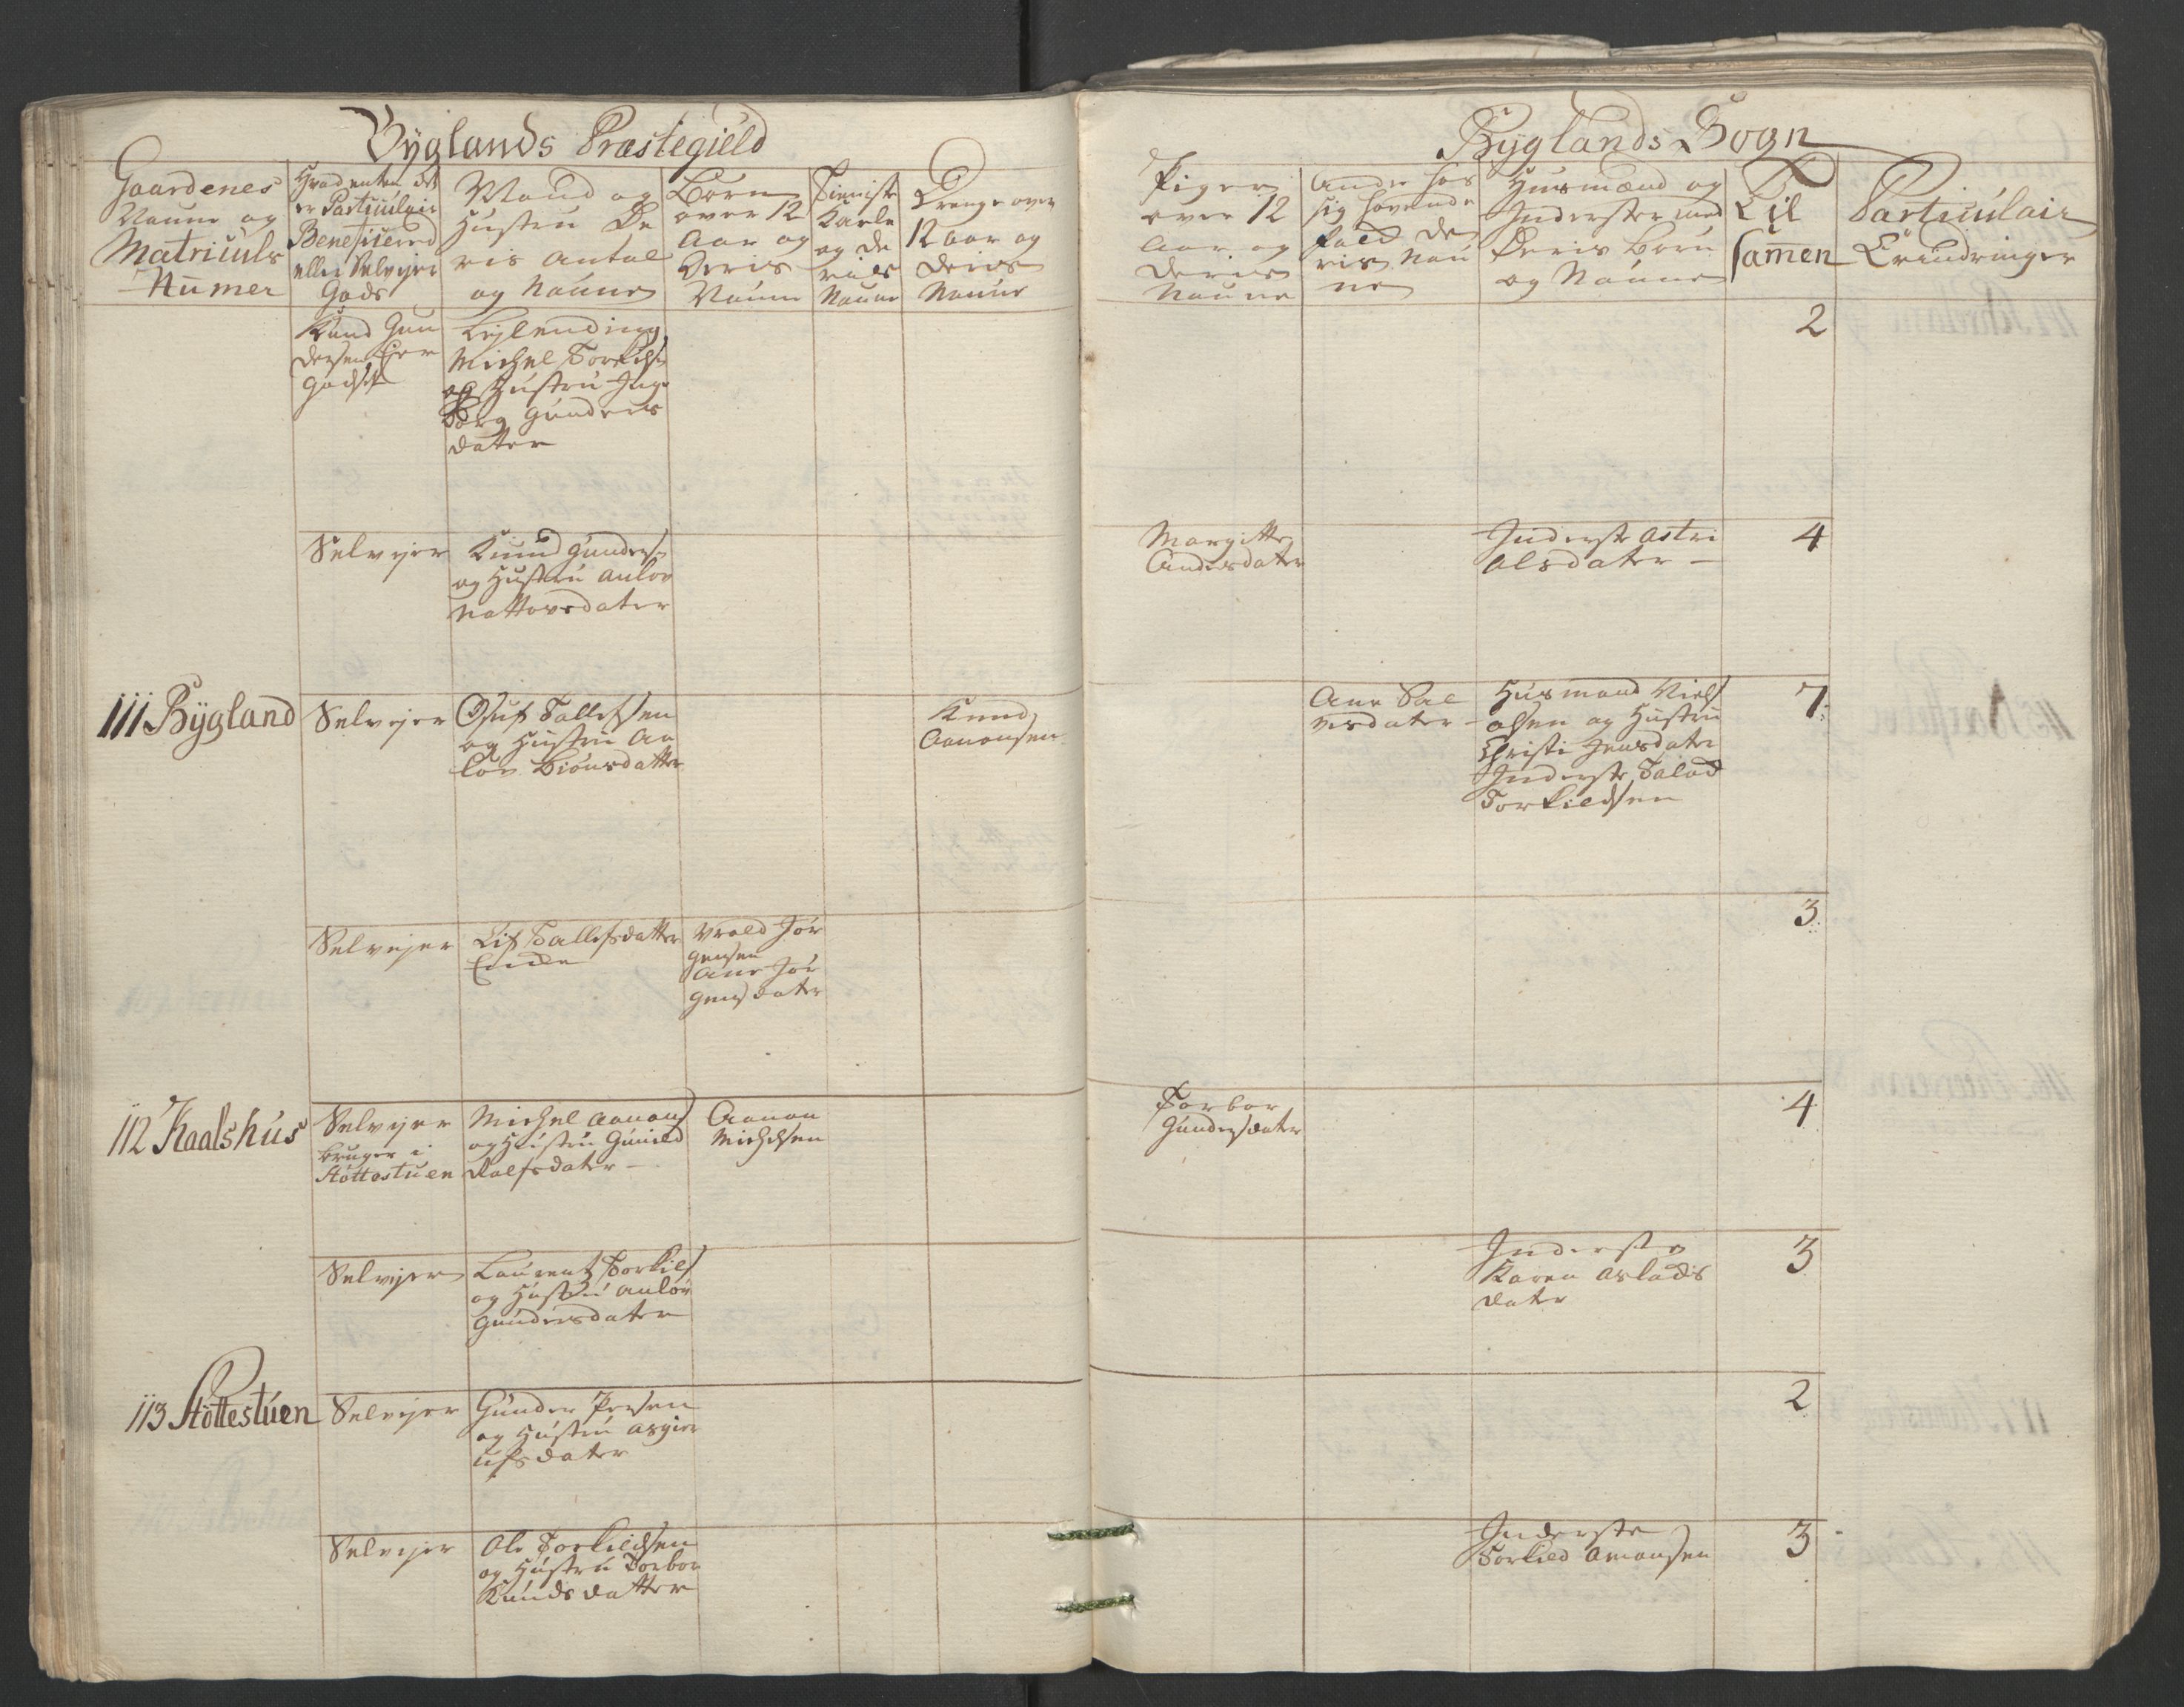 Byglands Præstegield
Gaardenes
Naune og
Matriculs
Numer
Hvad enten det
er Particulair
Beneficered
eller Selvejer
Gods
Mand og
Hustru De
ris Antal
og Naune
Børn
over 12
Aar og
Deris
Naune
Tieniste
Karle
og de
Naune
Drenge over
12 Aar og
Deris
Naune
Byglands Sogn
Piger
over 12
Aar og
Deris
Naune
Andre hos
sig havende
Folck De
ris Nau
ne
Husmænd og
Inderster med
Deris Børn
og Naune
Til
samen
Particulair
Erindringer
Knud Gun
dersen
Lejlending
Michel Torkilds
og Hustru Inge
borg Gunders
datter
2
Selvejer
Knud Gunders
og Hustru Anlov
Nottovsdater
Margitte
Andersdater
Inderste Astri
Olsdater
4
111 Bygland
Selvejer
Osuf Tallefsen
og Hustru An
lov Biønsdatter
Knud
Aanonsen
Ane Sal
vesdater
Husmand Niels
Olsen og Hustru
Christi Jensdater
Inderste Salad
Torkildsen
7
Selvejer
Lif Tallefsdatter
Encke
Vrold Jør
gensen
Ane Jør
gensdater
3
112 Kaalshus
Selvejer
bruger i
Støttestuen
Michel Aanons
og Hustru Gunild
Rolfsdater
Aanon
Michelsen
Torbor
Gundersdater
4
Selvejer
Laurentz Torkils
og Hustru Anlov
Gundersdater
Inderste
Karen Aslads
dater
3
113 Støttestuen
Selvejer
Gunder Persen
og Hustru Asgier
Ufsdater
2
Selvejer
Ole Torkildsen
og Hustru Torbor
Knudsdatter
Inderste
Torkild Amonsen
3